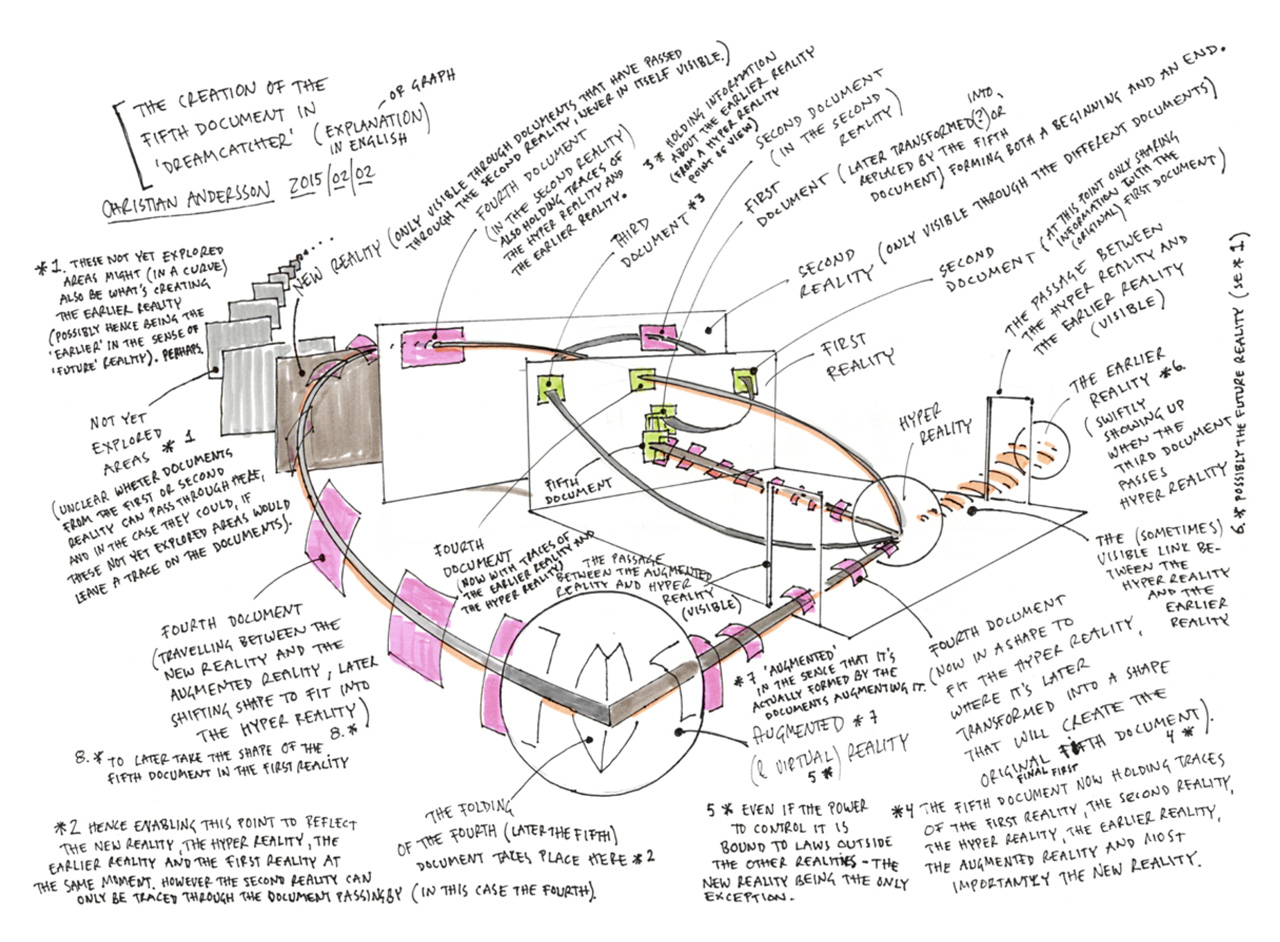 THE CREATION OF THE
FIFTH DOCUMENT IN
'DREAMCATCHER' (EXPLANATION) OF GRAPH
IN ENGLISH
CHRISTIAN ANDERSSON 2015/02/02
*1. THESE NOT YET EXPLORED
AREAS MIGHT (IN A CURVE)
ALSO BE WHAT'S CREATING
THE EARLIER REALITY
(POSSIBLY HENCE BEING THE
'EARLIER' IN THE SENSE OF
'FUTURE' REALITY). PERHAPS.
NOT YET
EXPLORED
AREAS *1
(UNCLEAR WHETER DOCUMENTS
FROM THE FIRST OR SECOND
REALITY CAN PASS THROUGH HERE,
AND IN THE CASE THEY COULD, IF
THESE NOT YET EXPLORED AREAS WOULD
LEAVE A TRACE ON THE DOCUMENTS).
NEW REALITY (ONLY VISIBLE THROUGH DOCUMENTS THAT HAVE PASSED
THROUGH THE SECOND REALITY, NEVER IN ITSELF VISIBLE.)
FOURTH DOCUMENT
(IN THE SECOND REALITY)
ALSO HOLDING TRACES OF
THE HYPER REALITY AND
THE EARLIER REALITY.
THIRD
DOCUMENT *3
3* HOLDING INFORMATION
ABOUT THE EARLIER REALITY
(FROM A HYPER REALITY
POINT OF VIEW)
SECOND DOCUMENT
(IN THE SECOND
REALITY)
FIRST
DOCUMENT (LATER TRANSFORMED(?) INTO, OR
REPLACED BY THE FIFTH
DOCUMENT) FORMING BOTH A BEGINNING AND AN END.
SECOND
REALITY (ONLY VISIBLE THROUGH THE DIFFERENT DOCUMENTS)
SECOND
DOCUMENT (AT THIS POINT ONLY SHARING
INFORMATION WITH THE
(ORIGINAL) FIRST DOCUMENT)
FIRST
REALITY
THE PASSAGE BETWEEN
THE HYPER REALITY AND
THE EARLIER REALITY
(VISIBLE)
HYPER
REALITY
THE EARLIER
REALITY *6
(SWIFTLY
SHOWING UP
WHEN THE
THIRD DOCUMENT
PASSES
HYPER REALITY
6.* POSSIBLY THE FUTURE REALITY (SE *1)
THE (SOMETIMES)
VISIBLE LINK BE-
TWEEN THE
HYPER REALITY
AND THE
EARLIER
REALITY
FIFTH
DOCUMENT
FOURTH
DOCUMENT
(NOW WITH TRACES OF
THE EARLIER REALITY AND
THE HYPER REALITY)
THE PASSAGE
BETWEEN THE AUGMENTED
REALITY AND HYPER
REALITY
(VISIBLE)
FOURTH DOCUMENT
(TRAVELLING BETWEEN THE
NEW REALITY AND THE
AUGMENTED REALITY, LATER
SHIFTING SHAPE TO FIT INTO
THE HYPER REALITY)
8.*
8.* TO LATER TAKE THE SHAPE OF THE
FIFTH DOCUMENT IN THE FIRST REALITY
*7 'AUGMENTED'
IN THE SENSE THAT IT'S
ACTUALLY FORMED BY THE
DOCUMENTS AUGMENTING IT.
AUGMENTED *7
(& VIRTUAL) REALITY
5*
FOURTH DOCUMENT
(NOW IN A SHAPE TO
FIT THE HYPER REALITY,
WHERE IT'S LATER
TRANSFORMED INTO A SHAPE
THAT WILL CREATE THE
ORIGINAL FIFTH DOCUMENT).
FINAL FIRST
4*
THE FOLDING
OF THE FOURTH (LATER THE FIFTH)
DOCUMENT TAKES PLACE HERE *2
*2 HENCE ENABLING THIS POINT TO REFLECT
THE NEW REALITY, THE HYPER REALITY, THE
EARLIER REALITY AND THE FIRST REALITY AT
THE SAME MOMENT. HOWEVER THE SECOND REALITY CAN
ONLY BE TRACED THROUGH THE DOCUMENT PASSING BY (IN THIS CASE THE FOURTH).
5* EVEN IF THE POWER
TO CONTROL IT IS
BOUND TO LAWS OUTSIDE
THE OTHER REALITIES - THE
NEW REALITY BEING THE ONLY
EXCEPTION.
*4 THE FIFTH DOCUMENT NOW HOLDING TRACES
OF THE FIRST REALITY, THE SECOND REALITY,
THE HYPER REALITY, THE EARLIER REALITY,
THE AUGMENTED REALITY AND MOST
IMPORTANTLY THE NEW REALITY.